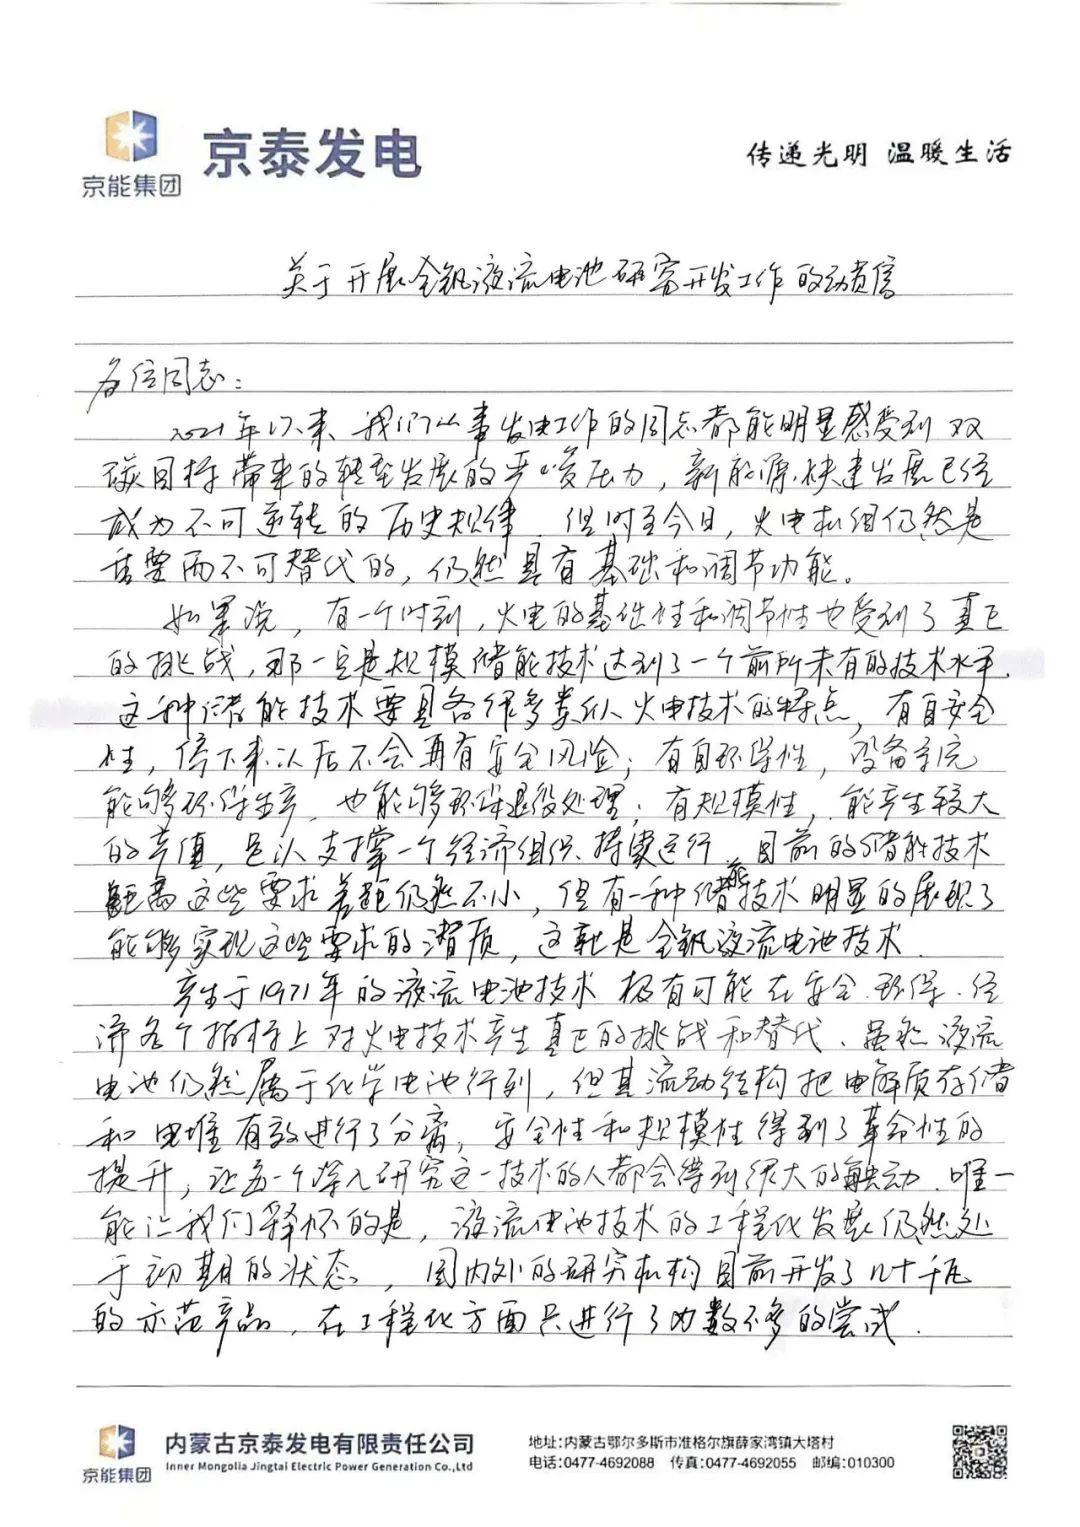 京能集团
京泰发电
传递光明 温暖生活
关于开展全钒液流电池研究开发工作的动员信
各位同志：
2021年以来，我们从事发电工作的同志都能明显感受到双
碳目标带来的转型发展的严峻压力，新能源快速发展已经
成为不可逆转的历史规律，但时至今日，火电机组仍然是
重要而不可替代的，仍然具有基础和调节功能。
如果说，有一个时刻，火电的基础性和调节性也受到了真正
的挑战，那一定是规模储能技术达到了一个前所未有的技术水平，
这种储能技术要具备很多类似火电技术的特点，有自安全
性，停下来以后不会再有安全风险；有自环保性，设备系统
能够环保生产，也能够环保退役处理；有规模性，能产生较大
的产值，足以支撑一个经济组织持续运行。目前的储能技术
距离这些要求差距仍然不小，但有一种储能技术明显的展现了
能够实现这些要求的潜质，这就是全钒液流电池技术。
产生于1971年的液流电池技术极有可能在安全、环保、经
济各个指标上对火电技术产生真正的挑战和替代。虽然液流
电池仍然属于化学电池行列，但其流动结构把电解质存储
和电堆有效进行了分离，安全性和规模性得到了革命性的
提升，让每一个深入研究这一技术的人都会得到很大的触动。唯一
能让我们释怀的是，液流电池技术的工程化发展仍然处
于初期的状态，国内外的研究机构目前开发了几十千瓦
的示范产品，在工程化方面只进行了为数不多的尝试。
京能集团
内蒙古京泰发电有限责任公司
Inner Mongolia Jingtai Electric Power Generation Co.,Ltd
地址:内蒙古鄂尔多斯市准格尔旗薛家湾镇大塔村
电话:0477-4692088 传真:0477-4692055 邮编:010300